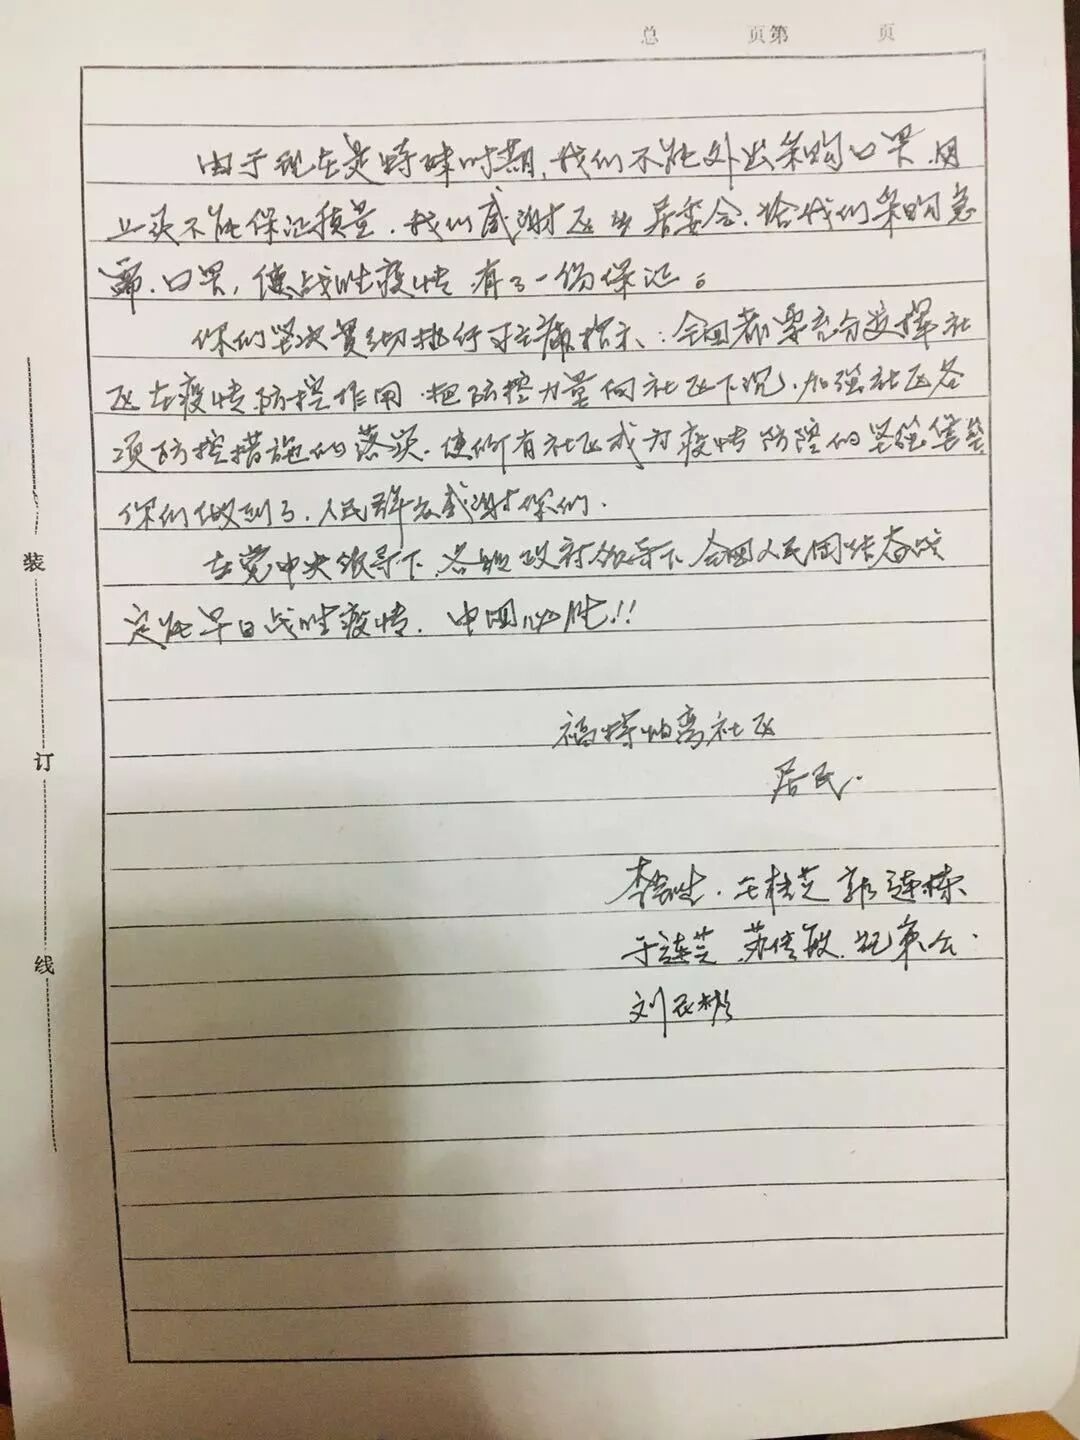 总 页第 页
由于现在是特殊时期，我们不能外出采购口罩，网
上买不能保证质量，我们感谢区 居委会，给我们采购急
需，口罩，使战胜疫情有了一份保证。
你们坚决贯彻执行 指示：全国都要充分发挥社
区在疫情防控作用，把防控力量向社区下沉，加强社区各
项防控措施的落实，使所有社区成为疫情防控的坚强堡垒
你们做到了，人民群众感谢你们.
在党中央领导下，各级政府领导下，全国人民团结奋战
定能早日战胜疫情，中国必胜!!
福特怡湾社区
居民.
王桂芝 郭连栋
于莲芝
刘
装
订
线